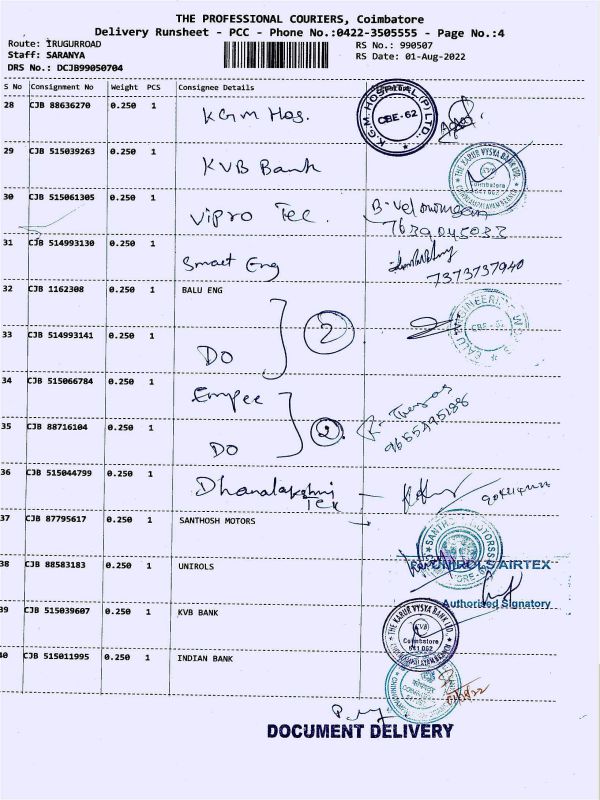 THE PROFESSIONAL COURIERS, Coimbatore
Delivery Runsheet - PCC - Phone No.:0422-3505555 - Page No.:4
Route: IRUGURROAD RS No.: 990507
Staff: SARANYA RS Date: 01-Aug-2022
DRS No.: DCJB99050704
S No Consignment No Weight PCS Consignee Details
28 CJB 88636270 0.250 1 KGM Hos. K.G.M. HOSPITAL (P) LTD. CBE-62
29 CJB 515039263 0.250 1 KVB Bank THE KARUR VYSYA BANK LTD. Coimbatore 641 062
30 CJB 515061305 0.250 1 Vipro Tec.
31 CJB 514993130 0.250 1 Smart Eng 7373737940
32 CJB 1162308 0.250 1 BALU ENG 2 BALU ENGINEERING
33 CJB 514993141 0.250 1 DO
34 CJB 515066784 0.250 1 Empee 2
35 CJB 88716104 0.250 1 DO
36 CJB 515044799 0.250 1 Dhanalakshmi Tex
37 CJB 87795617 0.250 1 SANTHOSH MOTORS
38 CJB 88583183 0.250 1 UNIROLS For UNIROLS AIRTEX
Authorised Signatory
39 CJB 515039607 0.250 1 KVB BANK THE KARUR VYSYA BANK LTD. KVB Coimbatore 641 062
40 CJB 515011995 0.250 1 INDIAN BANK
DOCUMENT DELIVERY